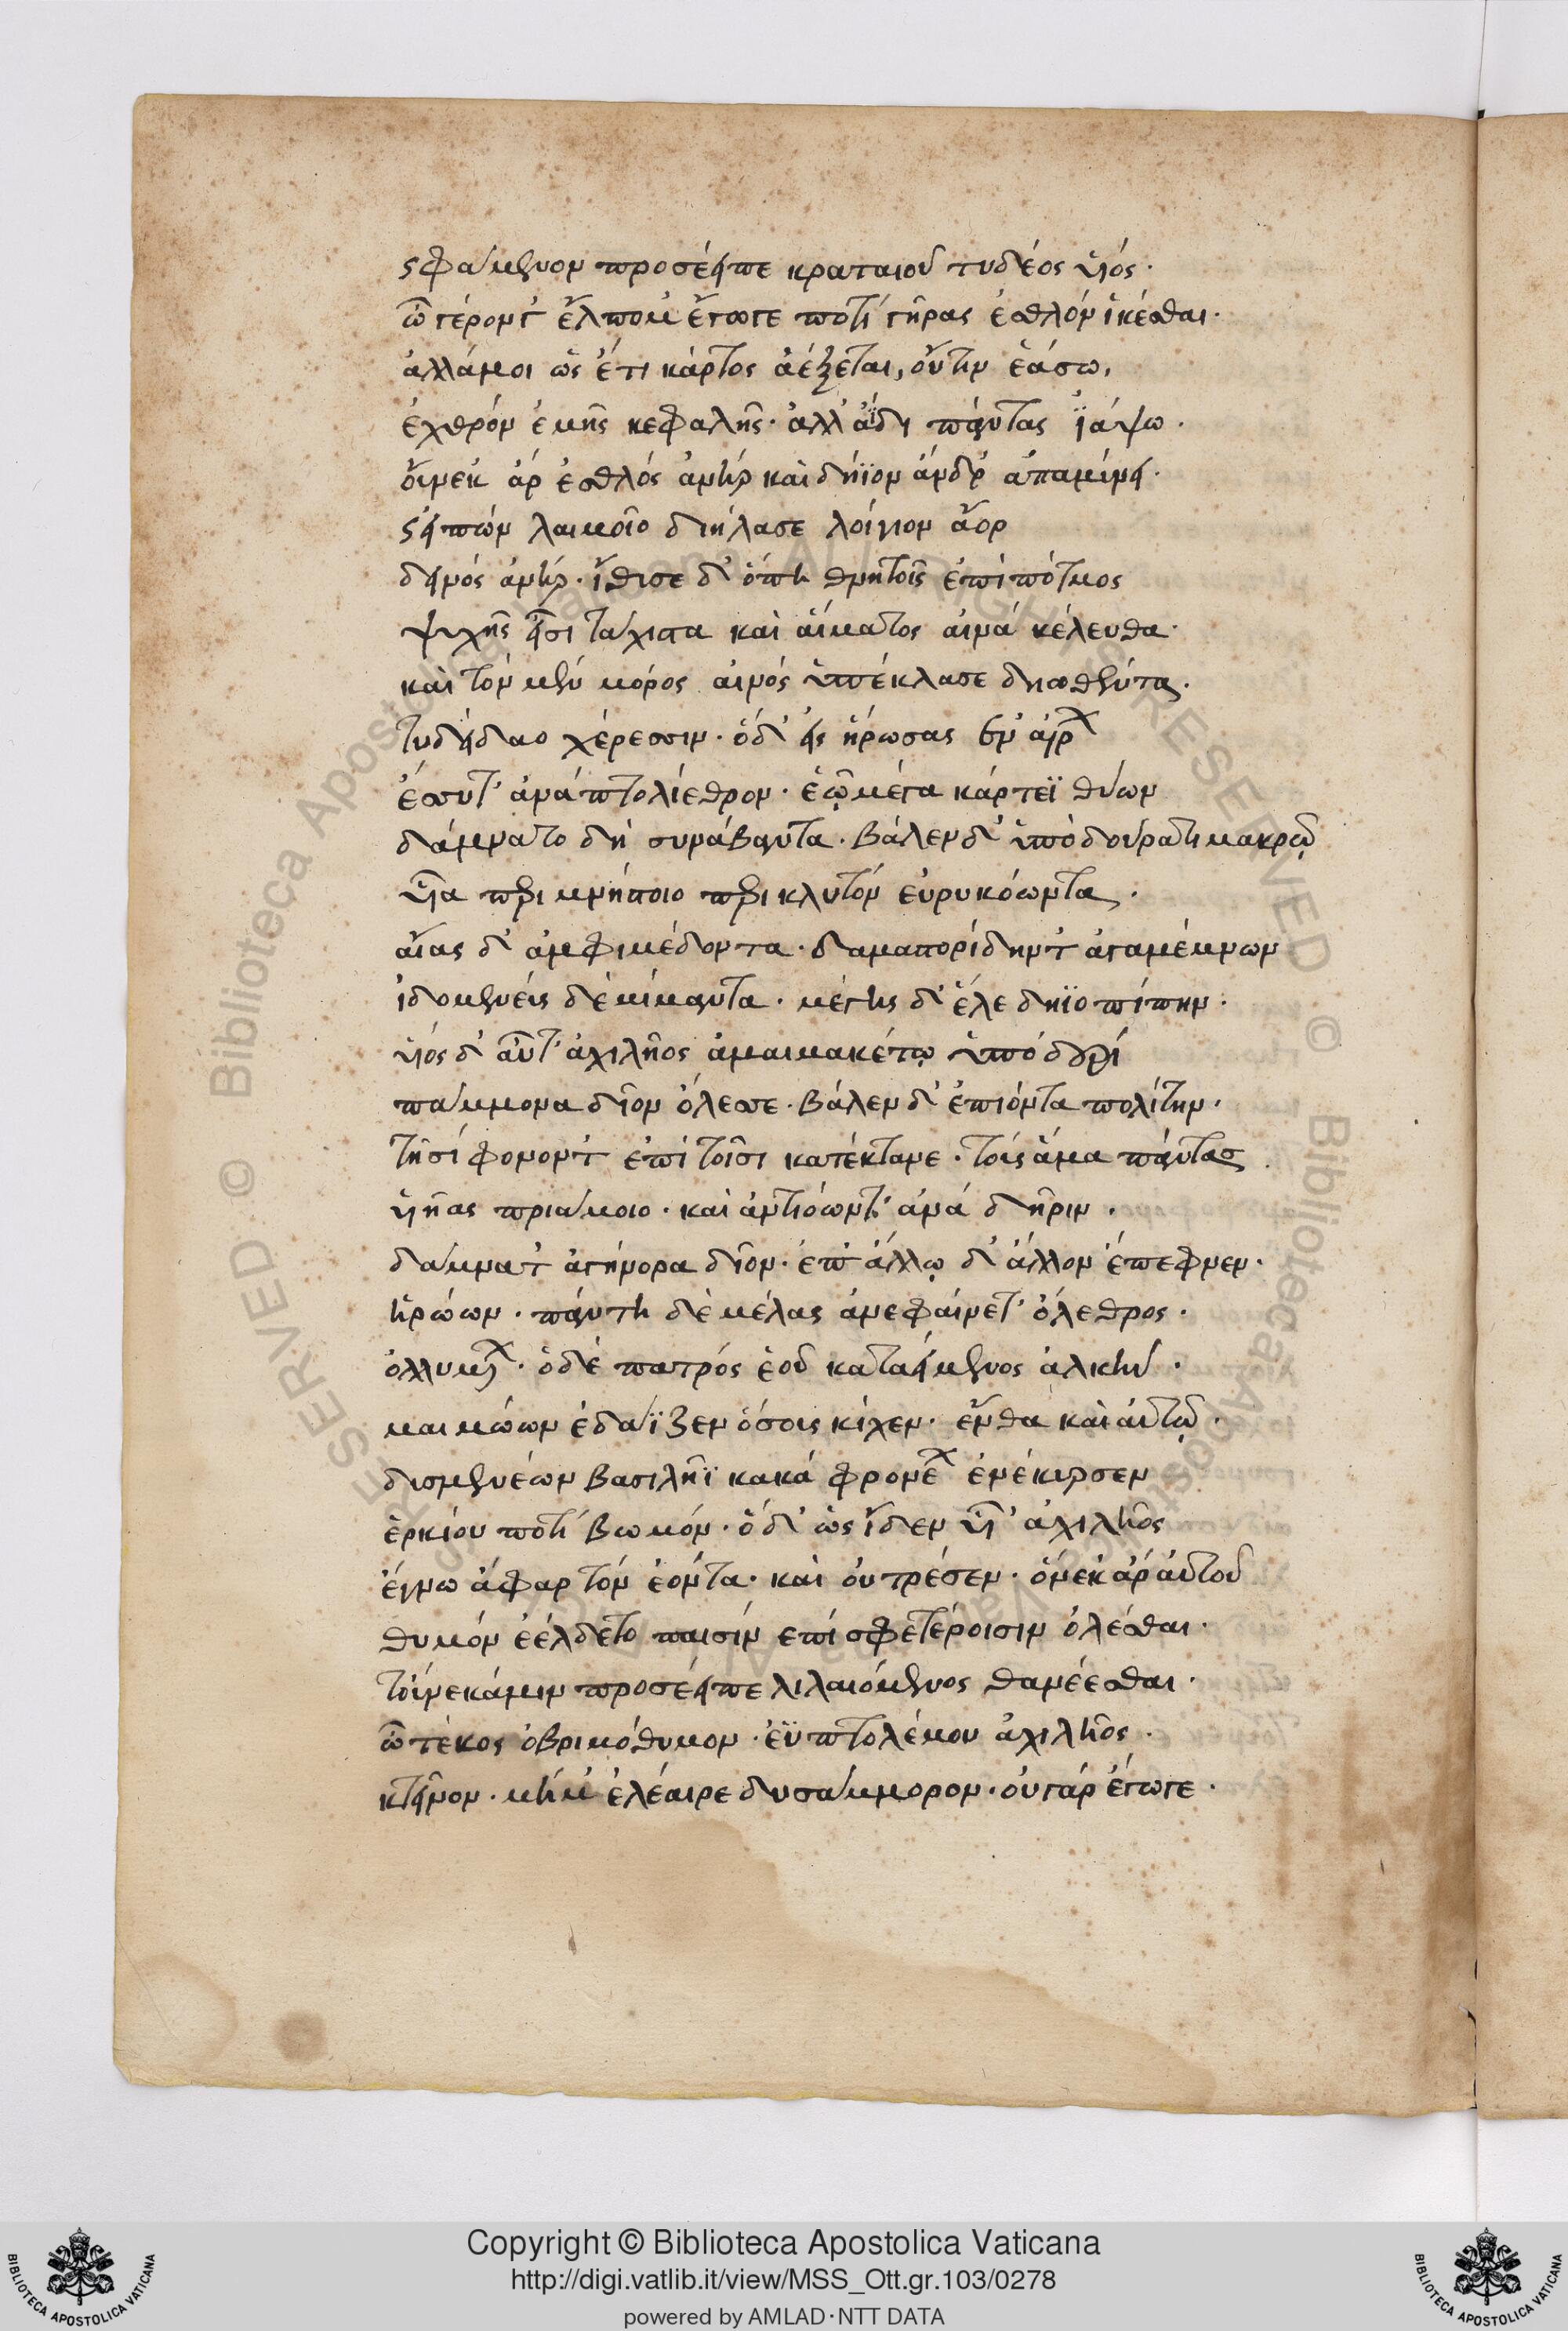 ὣς φάμενον προσέειπε κραταιοῦ τυδέος υἱός·
ὦ γέρον τ' ἔλπομ' ἔγωγε ποτὶ γῆρας ἐσθλὸν ἱκέσθαι·
ἀλλά μοι ὡς ἔτι κάρτος ἀέξεται, οὔτιν ἐάσω,
ἐχθρὸν ἐμῆς κεφαλῆς· ἀλλ' ἄϊδι πάντας ἰάψω.
οὕνεκ' ἄρ ἐσθλὸς ἀνὴρ καὶ δήϊον ἄνδρ' ἀπαμύνει.
ὣς εἰπὼν λαιμοῖο διήλασε λοίγιον ἄορ
δεινὸς ἀνήρ· ἴθισε δ' ὅπη θνητοῖς ἐπὶ πότμος
ψυχῆς εἶσι τάχιστα καὶ αἵματος αἰνὰ κέλευθα·
καὶ τὸν μὲν μόρος αἰνὸς ὑπέκλασε δηωθέντα.
τυδείδαο χέρεσσιν· ὁ δ' εἰς ἥρωσας ἐναίρων
ἔσσυτ' ἀνὰ πτολίεθρον· ἑῷ μέγα κάρτεϊ θύων
δάμνατο δ' ἠυράβαντα. βάλεν δ' ὑπὸ δούρατι μακρῷ
υἷα περιμνήστοιο περικλυτὸν εὐρυκόωντα.
αἴας δ' ἀμφιμέδοντα· δαμαστορίδην τ' ἀγαμέμνων
ἰδομενεὺς δὲ μίμαντα· μέγης δ' ἕλε δηϊοπίτην.
υἱὸς δ' αὖτ' ἀχιλῆος ἀμαιμακέτῳ ὑπὸ δουρὶ
πάμμονα δῖον ὄλεσσε. βάλεν δ' ἐπιόντα πολίτην.
τησίφονόν τ' ἐπὶ τοῖσι κατέκτανε. τοὺς ἅμα πάντας
υἱῆας πριάμοιο· καὶ ἀντιόωντ' ἀνὰ δῆριν.
δάμνατ' ἀγήνορα δῖον· ἐπ' ἄλλῳ δ' ἄλλον ἔπεφνεν·
ἡρώων· πάντη δὲ μέλας ἀνεφαίνετ' ὄλεθρος.
ὀλλυμένων· ὁ δὲ πατρὸς ἑοῦ καταειμένος ἀλκὴν.
μαιμώων ἐδάϊζεν ὅσοις κίχεν· ἔνθα καὶ αὐτῷ.
δυσμενέων βασιλῆϊ κακὰ φρονέων ἐνέκυρσεν
ἑρκίου ποτὶ βωμόν· ὁ δ' ὡς ἴδεν υἷ' ἀχιλῆος
ἔγνω ἄφαρ τὸν ἐόντα· καὶ οὐ τρέσεν· οὕνεκ' ἄρ' αὐτοῦ
θυμὸν ἐέλδετο παισὶν ἐπὶ σφετέροισιν ὀλέσθαι·
τοὔνεκά μιν προσέειπε λιλαιόμενος θανέεσθαι.
ὦ τέκος ὀβριμόθυμον· ἐϋπτολέμου ἀχιλῆος.
κτεῖνον· μή μ' ἐλέαιρε δυσάμμορον· οὐ γὰρ ἔγωγε·
Copyright © Biblioteca Apostolica Vaticana
http://digi.vatlib.it/view/MSS_Ott.gr.103/0278
powered by AMLAD·NTT DATA